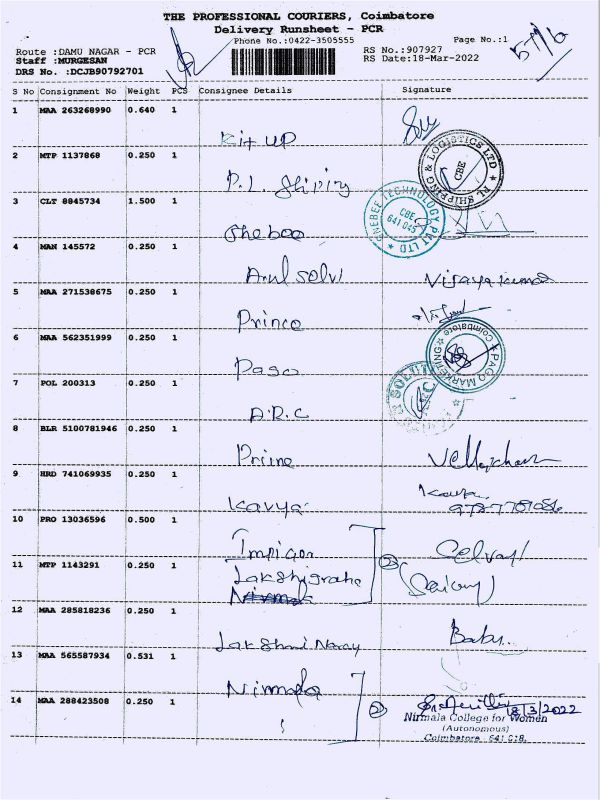 THE PROFESSIONAL COURIERS, Coimbatore
Delivery Runsheet - PCR
Phone No.:0422-3505555
Page No.:1
Route :DAMU NAGAR - PCR
RS No.:907927
Staff :MURGESAN
RS Date:18-Mar-2022
DRS No. :DCJB90792701
S No Consignment No Weight PCS Consignee Details Signature
1 MAA 263268990 0.640 1
Kit UP
2 MTP 1137868 0.250 1
SHIPPING & LOGISTICS LTD
CBE
3 CLT 8845734 1.500 1
TECHNOLOGY PVT LTD
CBE
641 045
4 MAN 145572 0.250 1
Arul Selvi Vijaya Kumar
5 MAA 271538675 0.250 1
Prince
6 MAA 562351999 0.250 1
PAGO MARKETING Coimbatore
Pago
7 POL 200313 0.250 1
SOLUT
A.R.C
8 BLR 5100781946 0.250 1
Prime
9 HRD 741069935 0.250 1
Kavya
10 PRO 13036596 0.500 1
11 MTP 1143291 0.250 1
Nirmala
12 MAA 285818236 0.250 1
Babu
13 MAA 565587934 0.531 1
Nirmala
14 MAA 288423508 0.250 1
18/3/2022
Nirmala College for Women
(Autonomous)
Coimbatore 641 018.